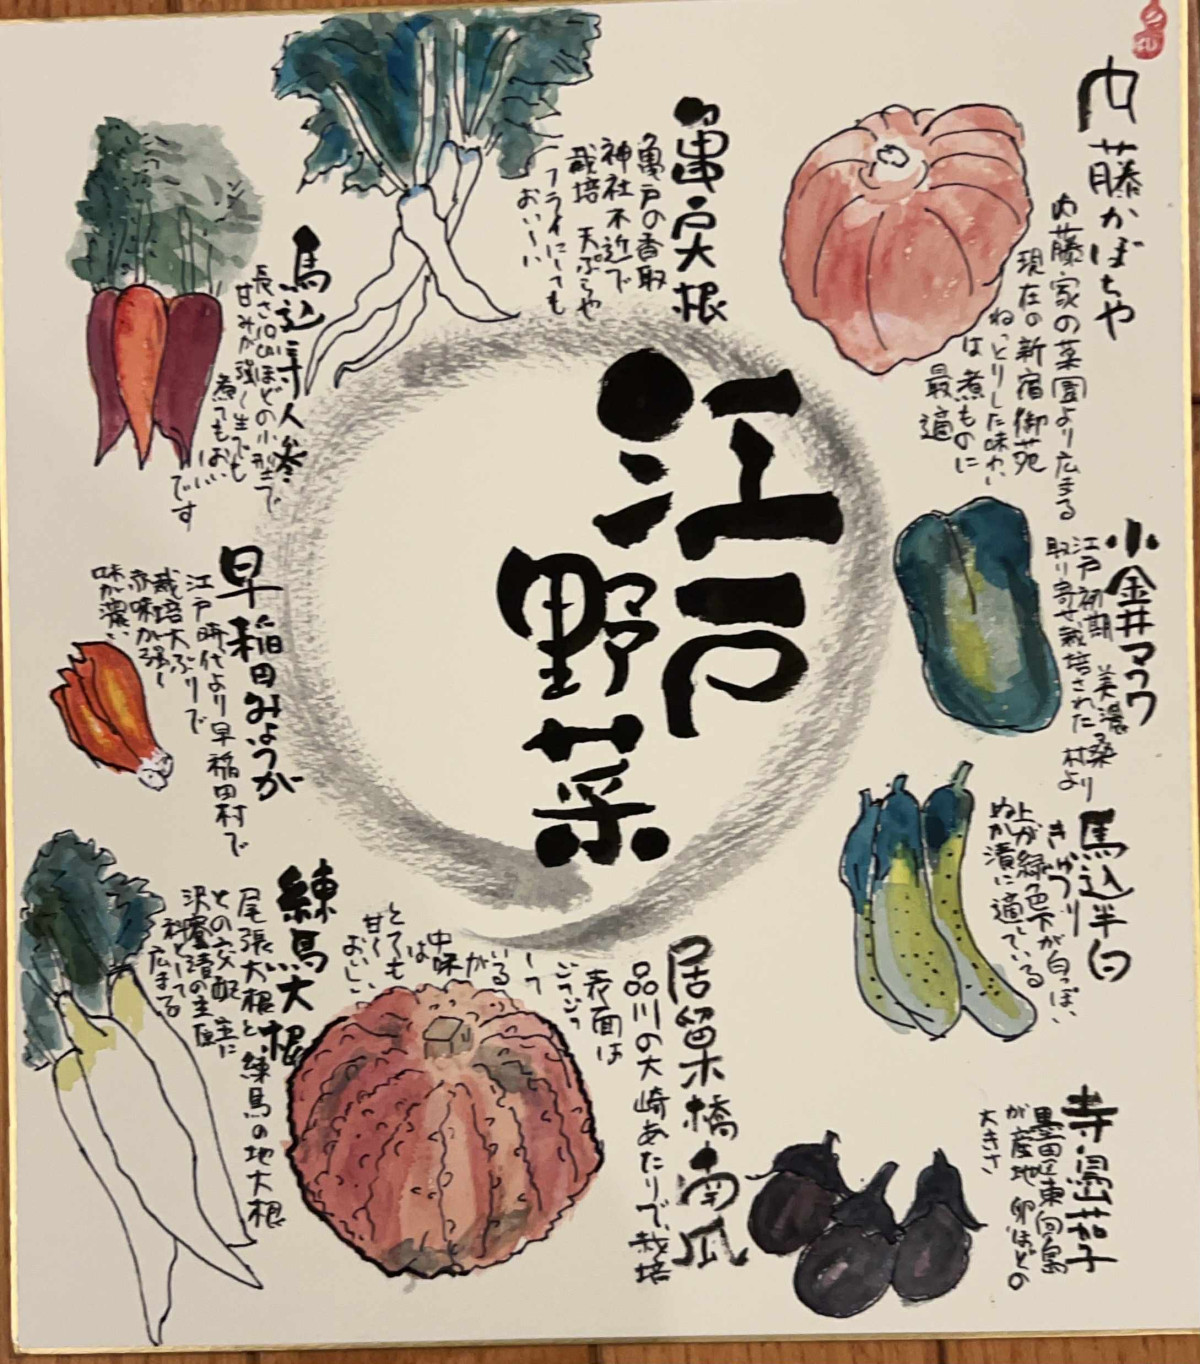 江戸
野菜
内藤かぼちゃ
内藤家の菜園より広まる
現在の新宿御苑
ねっとりした味わい
は煮ものに
最適
小金井マクワ
江戸初期 美濃桑より
取り寄せ栽培された 村より
馬込半白
きゅうり
上が緑色下が白っぽい
ぬか漬に適している
寺島茄子
墨田区東向島
が産地 卵ほどの
大きさ
亀戸大根
亀戸の香取
神社不近で
栽培 天ぷらや
フライにしても
おいしい
居留木橋南瓜
品川の大崎あたりで栽培
表面は
ゴツゴツ
して
いる
が
中味
は
とても
甘く
おいしい
馬込三寸人参
長さ10cmほどの小型で
甘みが強く生でも
煮てもおい
しい
です
早稲田みょうが
江戸時代より早稲田村で
栽培大ぶりで
赤味が強く
味が濃い
練馬大根
尾張大根と練馬の地大根
との交配 主に
沢庵漬の主原
料として
広まる